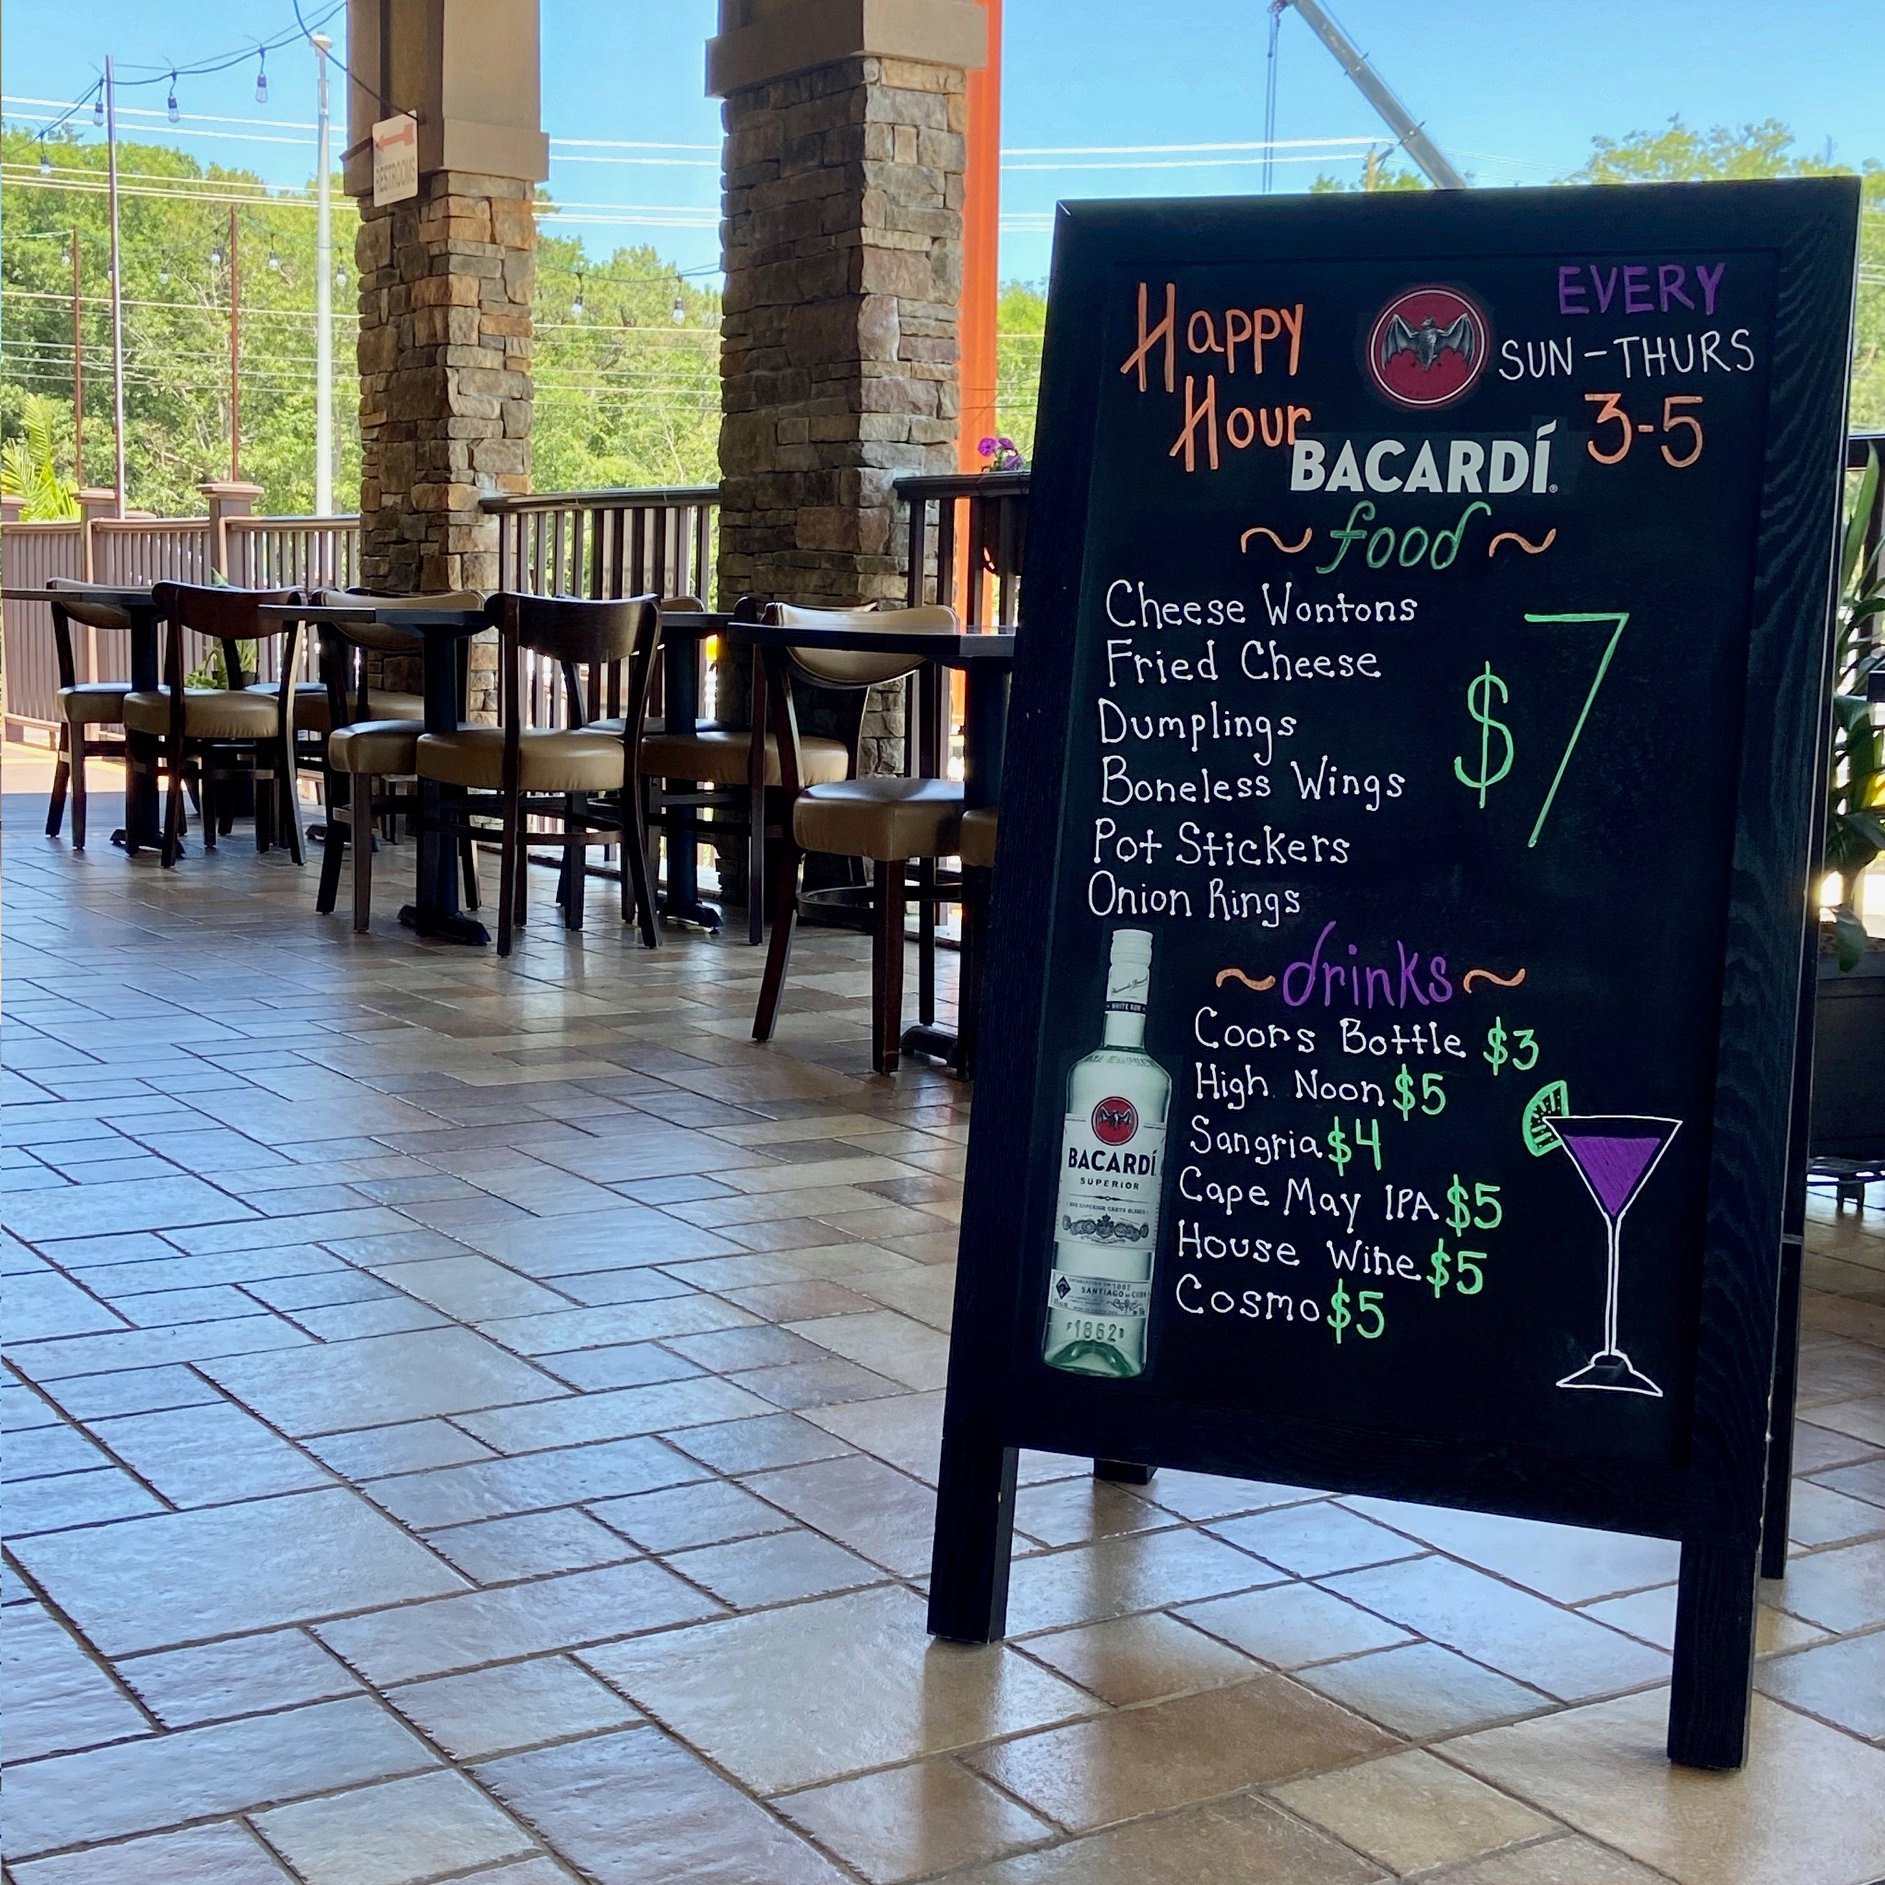 RESTROOMS
Happy
Hour
EVERY
SUN-THURS
3-5
BACARDÍ
~food~
Cheese Wontons
Fried Cheese
Dumplings
Boneless Wings
Pot Stickers
Onion Rings
$7
~drinks~
Coors Bottle $3
High Noon $5
Sangria $4
Cape May IPA $5
House Wine $5
Cosmo $5
WHITE RUM
BACARDÍ
SUPERIOR
SANTIAGO DE CUBA
1862